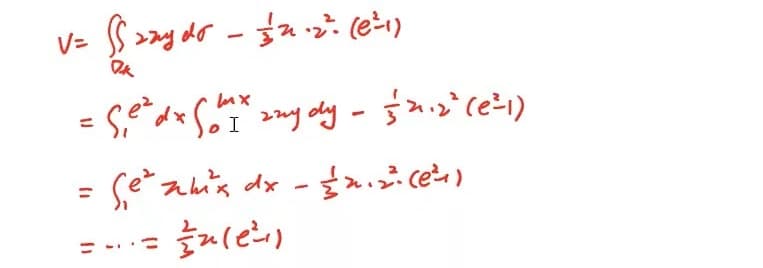 V = ∬_{D大} 2πy dσ - 1/3 π · 2² · (e²-1)
= ∫₁^{e²} dx ∫₀^{ln x} 2πy dy - 1/3 π · 2² (e²-1)
= ∫₁^{e²} π ln²x dx - 1/3 π · 2² · (e²-1)
= ··· = 2/3 π (e²-1)